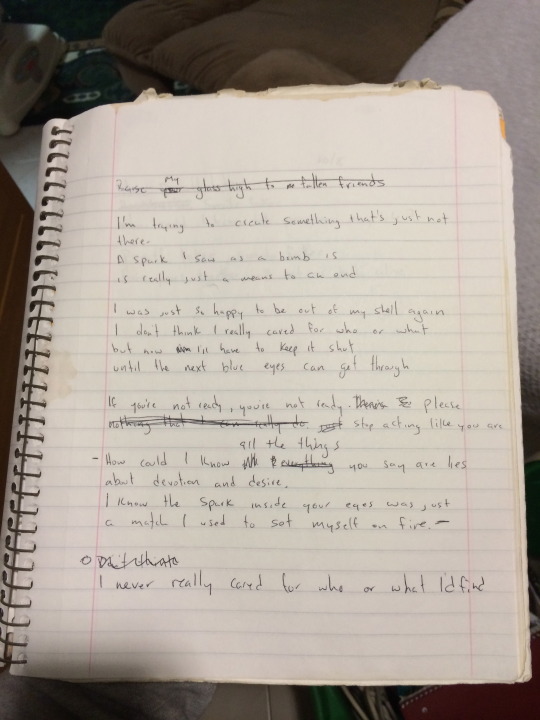 Raise my glass high to me fallen friends
I'm trying to create something that's just not
there.
A spark I saw as a bomb is
is really just a means to an end
I was just so happy to be out of my shell again
I don't think I really cared for who or what
but now I'll have to keep it shut
until the next blue eyes can get through
If you're not ready, you're not ready. please
nothing that I can really do just stop acting like you are
all the things
- How could I know everything you say are lies
about devotion and desire.
I know the spark inside your eyes was just
a match I used to set myself on fire. -
I never really cared for who or what I'd find